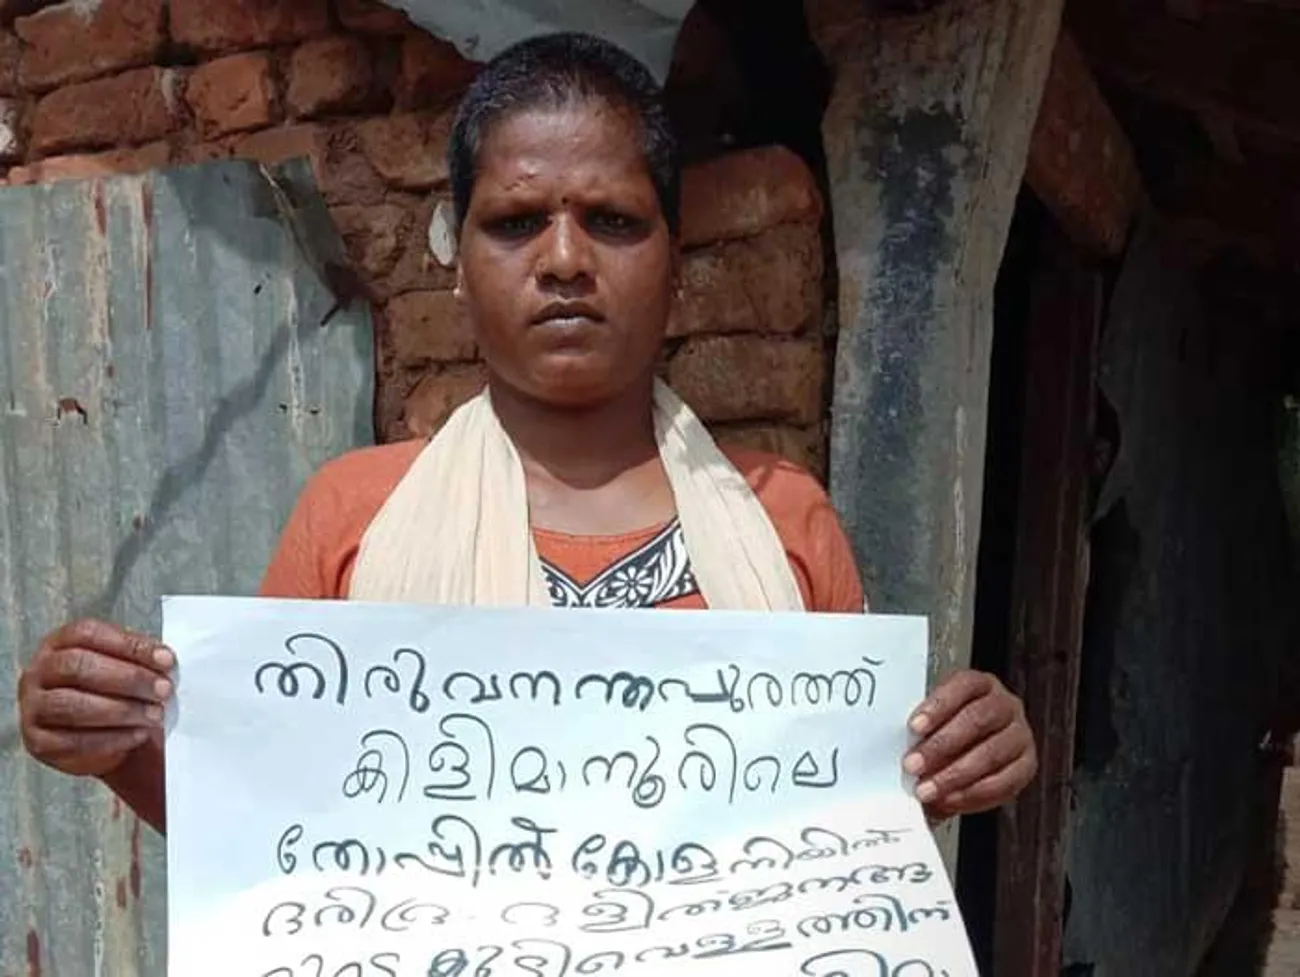 തിരുവനന്തപുരത്ത്
കിളിമാനൂരിലെ
തോപ്പിൽ കോളനിയിൽ
ദരിദ്ര ദളിത്ജനങ്ങ
കുടിവെള്ളത്തിന്